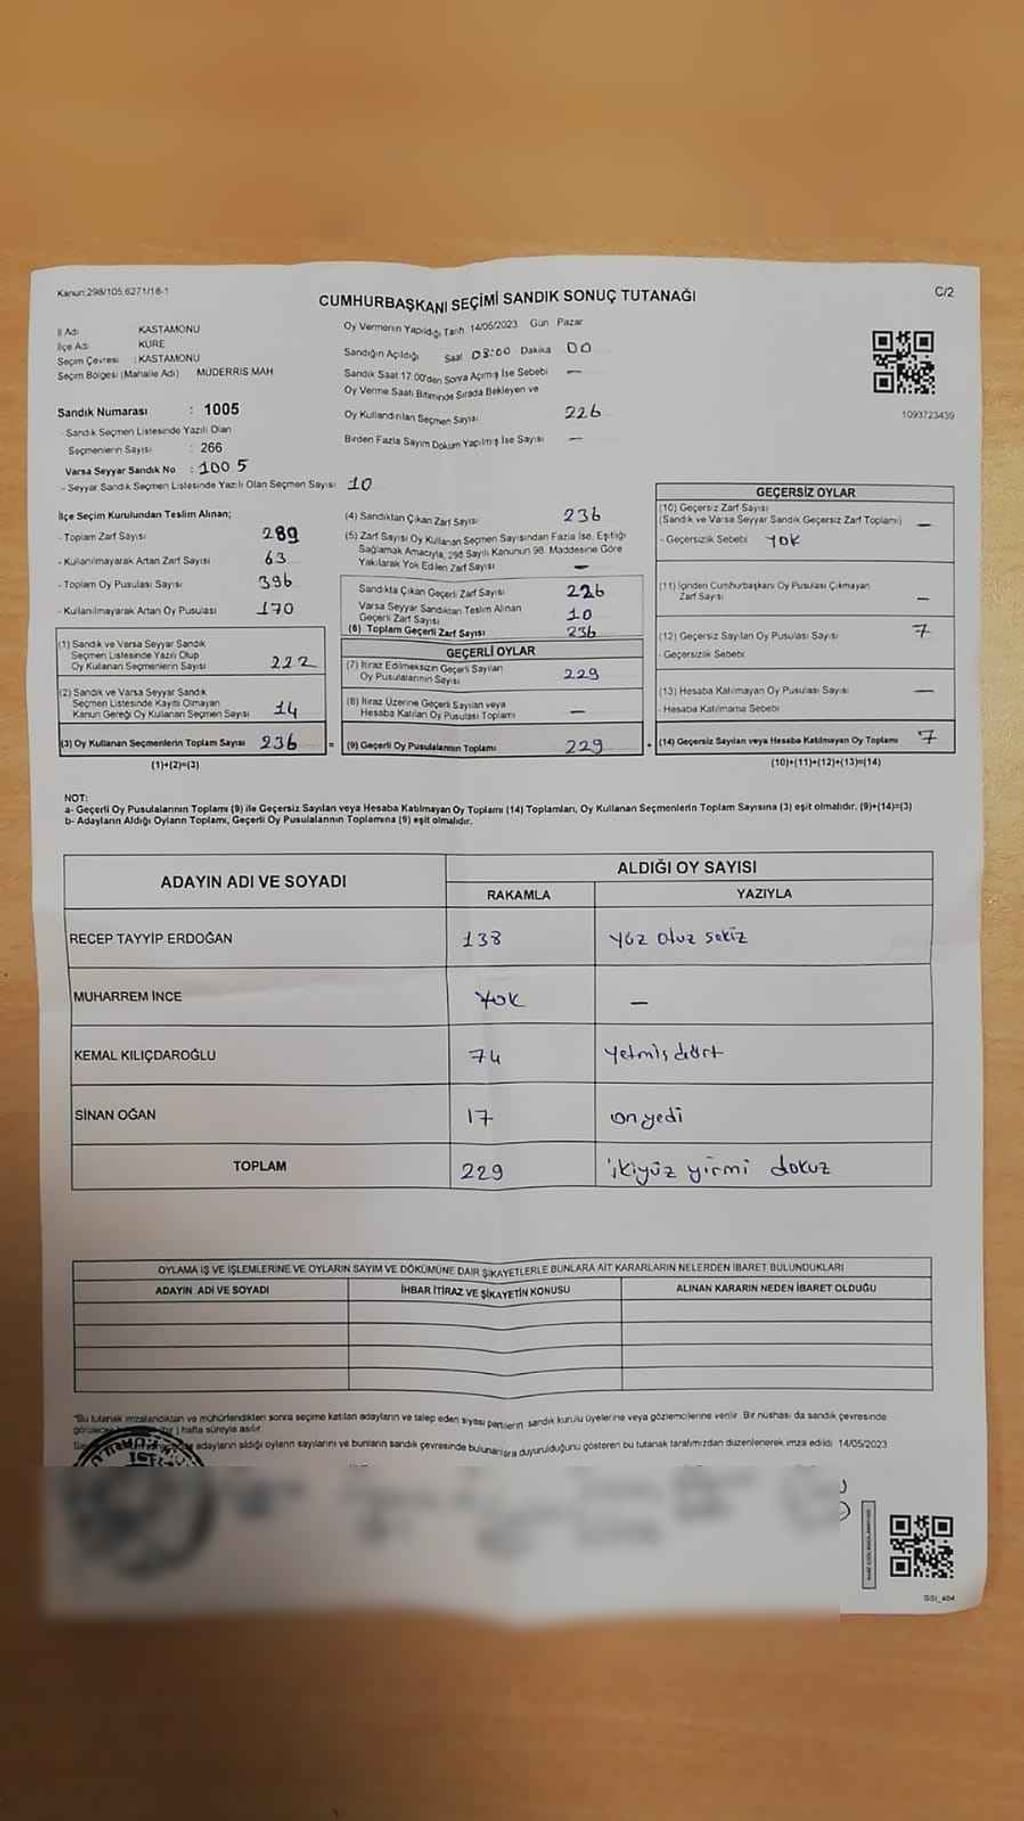 Kanun:298/105,6271/18-1
C/2
CUMHURBAŞKANI SEÇİMİ SANDIK SONUÇ TUTANAĞI
İl Adı KASTAMONU
İlçe Adı KÜRE
Seçim Çevresi : KASTAMONU
Seçim Bölgesi (Mahalle Adı) MÜDERRİS MAH
Sandık Numarası : 1005
- Sandık Seçmen Listesinde Yazılı Olan
Seçmenlerin Sayısı : 266
Varsa Seyyar Sandık No : 1005
- Seyyar Sandık Seçmen Listesinde Yazılı Olan Seçmen Sayısı 10
Oy Vermenin Yapıldığı Tarih 14/05/2023 Gün Pazar
Sandığın Açıldığı Saat 08:00 Dakika 00
Sandık Saat 17:00'den Sonra Açılmış İse Sebebi —
Oy Verme Saati Bitiminde Sırada Bekleyen ve
Oy Kullandırılan Seçmen Sayısı 226
Birden Fazla Sayım Döküm Yapılmış İse Sayısı —
1093723439
İlçe Seçim Kurulundan Teslim Alınan;
- Toplam Zarf Sayısı 289
- Kullanılmayarak Artan Zarf Sayısı 63
- Toplam Oy Pusulası Sayısı 396
- Kullanılmayarak Artan Oy Pusulası 170
(1) Sandık ve Varsa Seyyar Sandık
Seçmen Listesinde Yazılı Olup
Oy Kullanan Seçmenlerin Sayısı 222
(2) Sandık ve Varsa Seyyar Sandık
Seçmen Listesinde Kayıtlı Olmayan
Kanun Gereği Oy Kullanan Seçmen Sayısı 14
(3) Oy Kullanan Seçmenlerin Toplam Sayısı 236 =
(1)+(2)=(3)
(4) Sandıktan Çıkan Zarf Sayısı 236
(5) Zarf Sayısı Oy Kullanan Seçmen Sayısından Fazla İse, Eşitliği
Sağlamak Amacıyla, 298 Sayılı Kanunun 98. Maddesine Göre
Yakılarak Yok Edilen Zarf Sayısı —
Sandıkta Çıkan Geçerli Zarf Sayısı 226
Varsa Seyyar Sandıktan Teslim Alınan
Geçerli Zarf Sayısı 10
(6) Toplam Geçerli Zarf Sayısı 236
GEÇERLİ OYLAR
(7) İtiraz Edilmeksizin Geçerli Sayılan
Oy Pusulalarının Sayısı 229
(8) İtiraz Üzerine Geçerli Sayılan veya
Hesaba Katılan Oy Pusulası Toplamı —
(9) Geçerli Oy Pusulalarının Toplamı 229 +
GEÇERSİZ OYLAR
(10) Geçersiz Zarf Sayısı
(Sandık ve Varsa Seyyar Sandık Geçersiz Zarf Toplamı) —
- Geçersizlik Sebebi YOK
(11) İçinden Cumhurbaşkanı Oy Pusulası Çıkmayan
Zarf Sayısı —
(12) Geçersiz Sayılan Oy Pusulası Sayısı 7
- Geçersizlik Sebebi
(13) Hesaba Katılmayan Oy Pusulası Sayısı —
- Hesaba Katılmama Sebebi
(14) Geçersiz Sayılan veya Hesaba Katılmayan Oy Toplamı 7
(10)+(11)+(12)+(13)=(14)
NOT:
a- Geçerli Oy Pusulalarının Toplamı (9) ile Geçersiz Sayılan veya Hesaba Katılmayan Oy Toplamı (14) Toplamları, Oy Kullanan Seçmenlerin Toplam Sayısına (3) eşit olmalıdır. (9)+(14)=(3)
b- Adayların Aldığı Oyların Toplamı, Geçerli Oy Pusulalarının Toplamına (9) eşit olmalıdır.
ADAYIN ADI VE SOYADI ALDIĞI OY SAYISI
RAKAMLA YAZIYLA
RECEP TAYYİP ERDOĞAN 138 yüz otuz sekiz
MUHARREM İNCE YOK —
KEMAL KILIÇDAROĞLU 74 yetmiş dört
SİNAN OĞAN 17 on yedi
TOPLAM 229 ikiyüz yirmi dokuz
OYLAMA İŞ VE İŞLEMLERİNE VE OYLARIN SAYIM VE DÖKÜMÜNE DAİR ŞİKAYETLERLE BUNLARA AİT KARARLARIN NELERDEN İBARET BULUNDUKLARI
ADAYIN ADI VE SOYADI İHBAR İTİRAZ VE ŞİKAYETİN KONUSU ALINAN KARARIN NEDEN İBARET OLDUĞU
"Bu tutanak imzalandıktan ve mühürlendikten sonra seçime katılan adayların ve talep eden siyasi partilerin sandık kurulu üyelerine veya gözlemcilerine verilir. Bir nüshası da sandık çevresinde
1 hafta süreyle asılır.
adayların aldığı oyların sayılarını ve bunların sandık çevresinde bulunanlara duyurulduğunu gösteren bu tutanak tarafımızdan düzenlenerek imza edildi. 14/05/2023